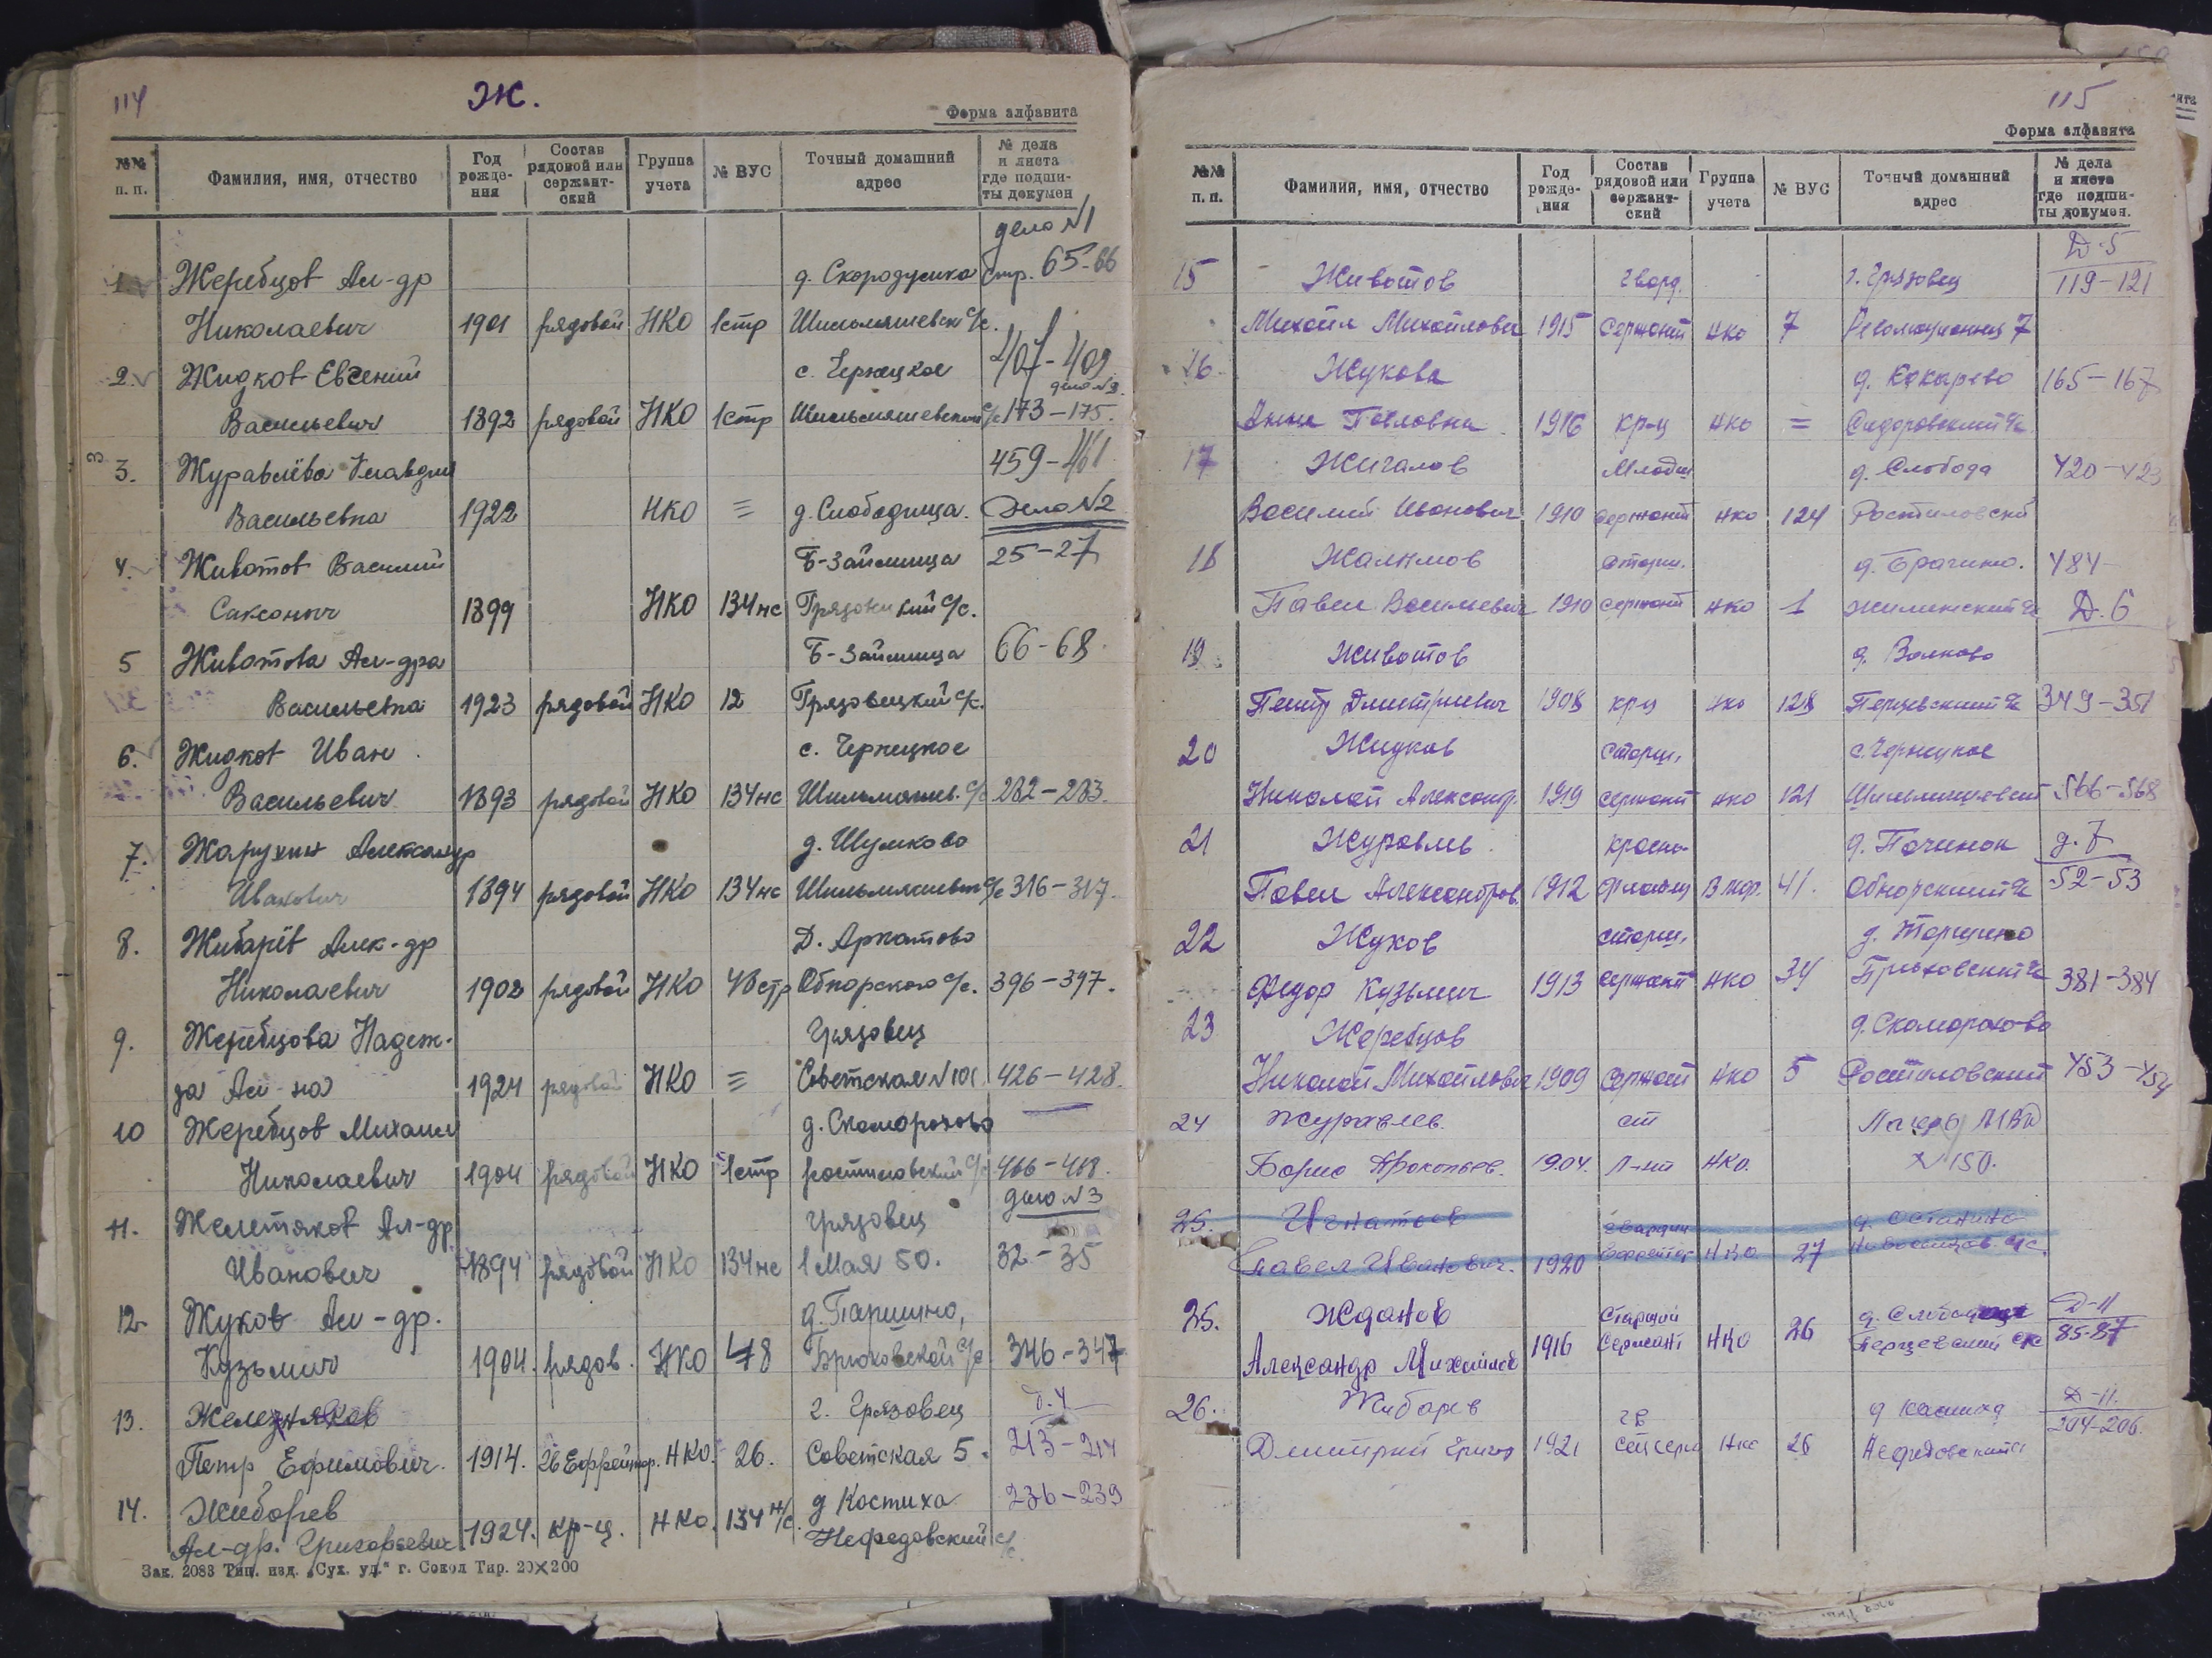 114
Ж.
Форма алфавита
№№ п. п. Фамилия, имя, отчество Год рожде- ния Состав рядовой или сержант- ский Группа учета № ВУС Точный домашний адрес № дела и листа где подши- ты докумен
дело №1
1 Жеребцов Ал-др д. Скородумка стр. 65-66
Николаевич 1901 рядовой НКО 1стр Шильмяшевск с/с.
2. Жидков Евгений с. Чернецкое 407-409
дело №2.
Васильевич 1892 рядовой НКО 1стр Шильмяшевский с/с 173-175.
3. Журавлёва Клавдия 459-461
Васильевна 1922 НКО = д. Слободища. Дело №2
4. Животов Василий Б-Займища 25-27
Саксоныч 1899 НКО 134нс с/с.
5 Животова Ал-дра Б-Займища 66-68
Васильевна 1923 рядовой НКО 12 Грязовецкий с/с.
6. Жидков Иван с. Чернецкое
Васильевич 1893 рядовой НКО 134нс Шильмяшев. с/с 282-283.
7. Жарухин Александр д. Шумково
Иванович 1894 рядовой НКО 134нс с/с 316-317.
8. Жибарёв Алек-др Д. Аркатово
Николаевич 1902 рядовой НКО Обнорского с/с. 396-397.
9. Жеребцова Надеж- Грязовец
да Ал-на 1924 рядовой НКО = Советская №101. 426-428.
10 Жеребцов Михаил д. Скоморохово
Николаевич 1904 рядовой НКО 1стр ростиловский с/с 466-468.
дело №3
11. Ал-др грязовец
Иванович 1894 рядовой НКО 134нс 1 Мая 50. 32-35
12 Жуков Ал-др. д. Паршино,
Кузьмич 1904. рядов. НКО 48 Брюховской с/с 346-347
13. Железняков г. Грязовец д. 4
Петр Ефимович. 1914. Ефрейтор. НКО. 26. Советская 5. 213-214
14. Жиборев д Костиха 236-239
Ал-др. Григорьевич 1924. кр-ц. НКО. 134 н/с. Нефедовский с/с.
Зак. 2083 Тип. изд. „Сух. уд.“ г. Сокол Тир. 20×200
115
Форма алфавита
№№ п. п. Фамилия, имя, отчество Год рожде- ния Состав рядовой или сержант- ский Группа учета № ВУС Точный домашний адрес № дела и листа где подши- ты докумен.
Д-5
15 Животов гвард. г. Грязовец 119-121
Михаил Михайлович 1915 Сержант НКО 7 Революционная 7
16 Жукова д. Кокырево 165-167
Анна Павловна 1916 кр-ц НКО = Сидоровский с/с
17 Жигалов Младш д. Слобода 420-423
Василий Иванович 1910 сержант НКО 124 Ростиловский
18 Жалимов старш. д. Брагино. 484-
Павел Васильевич 1910 сержант НКО 1 Жилинский с/с Д. 6
19 Животов д. Волково
Петр Дмитриевич 1908 кр-ц НКО 128 Перцевский с/с 349-351
20 Жидков старш. с. Чернецкое
Николай Александр. 1919 сержант НКО 121 566-568
21 Журавль красно- д. Починок д. 7
Павел Александров. 1912 флотец 41. Обнорский с/с 52-53
22 Жуков старш. д.
Федор Кузьмич 1913 сержант НКО 34 Брюховский с/с 381-384
23 Жеребцов д. Скоморохово
Николай Михайлович 1909 Сержант НКО 5 Ростиловский 453-454
24 Журавлев. ст Лагерь МВД
Борис Прокопьев. 1904. Л-нт НКО. №150.
25. Игнатьев гвардии д. Останино
Павел Иванович. 1920 ефрейтор НКО 27 с/с.
25. Жданов Старший д. Д-11
Александр Михайлов 1916 Сержант НКО 26 Перцевский с/с 85-87
26. Жибарев гв д Д-11.
Дмитрий Григор 1921 НКО 26 Нефедовский 204-206.